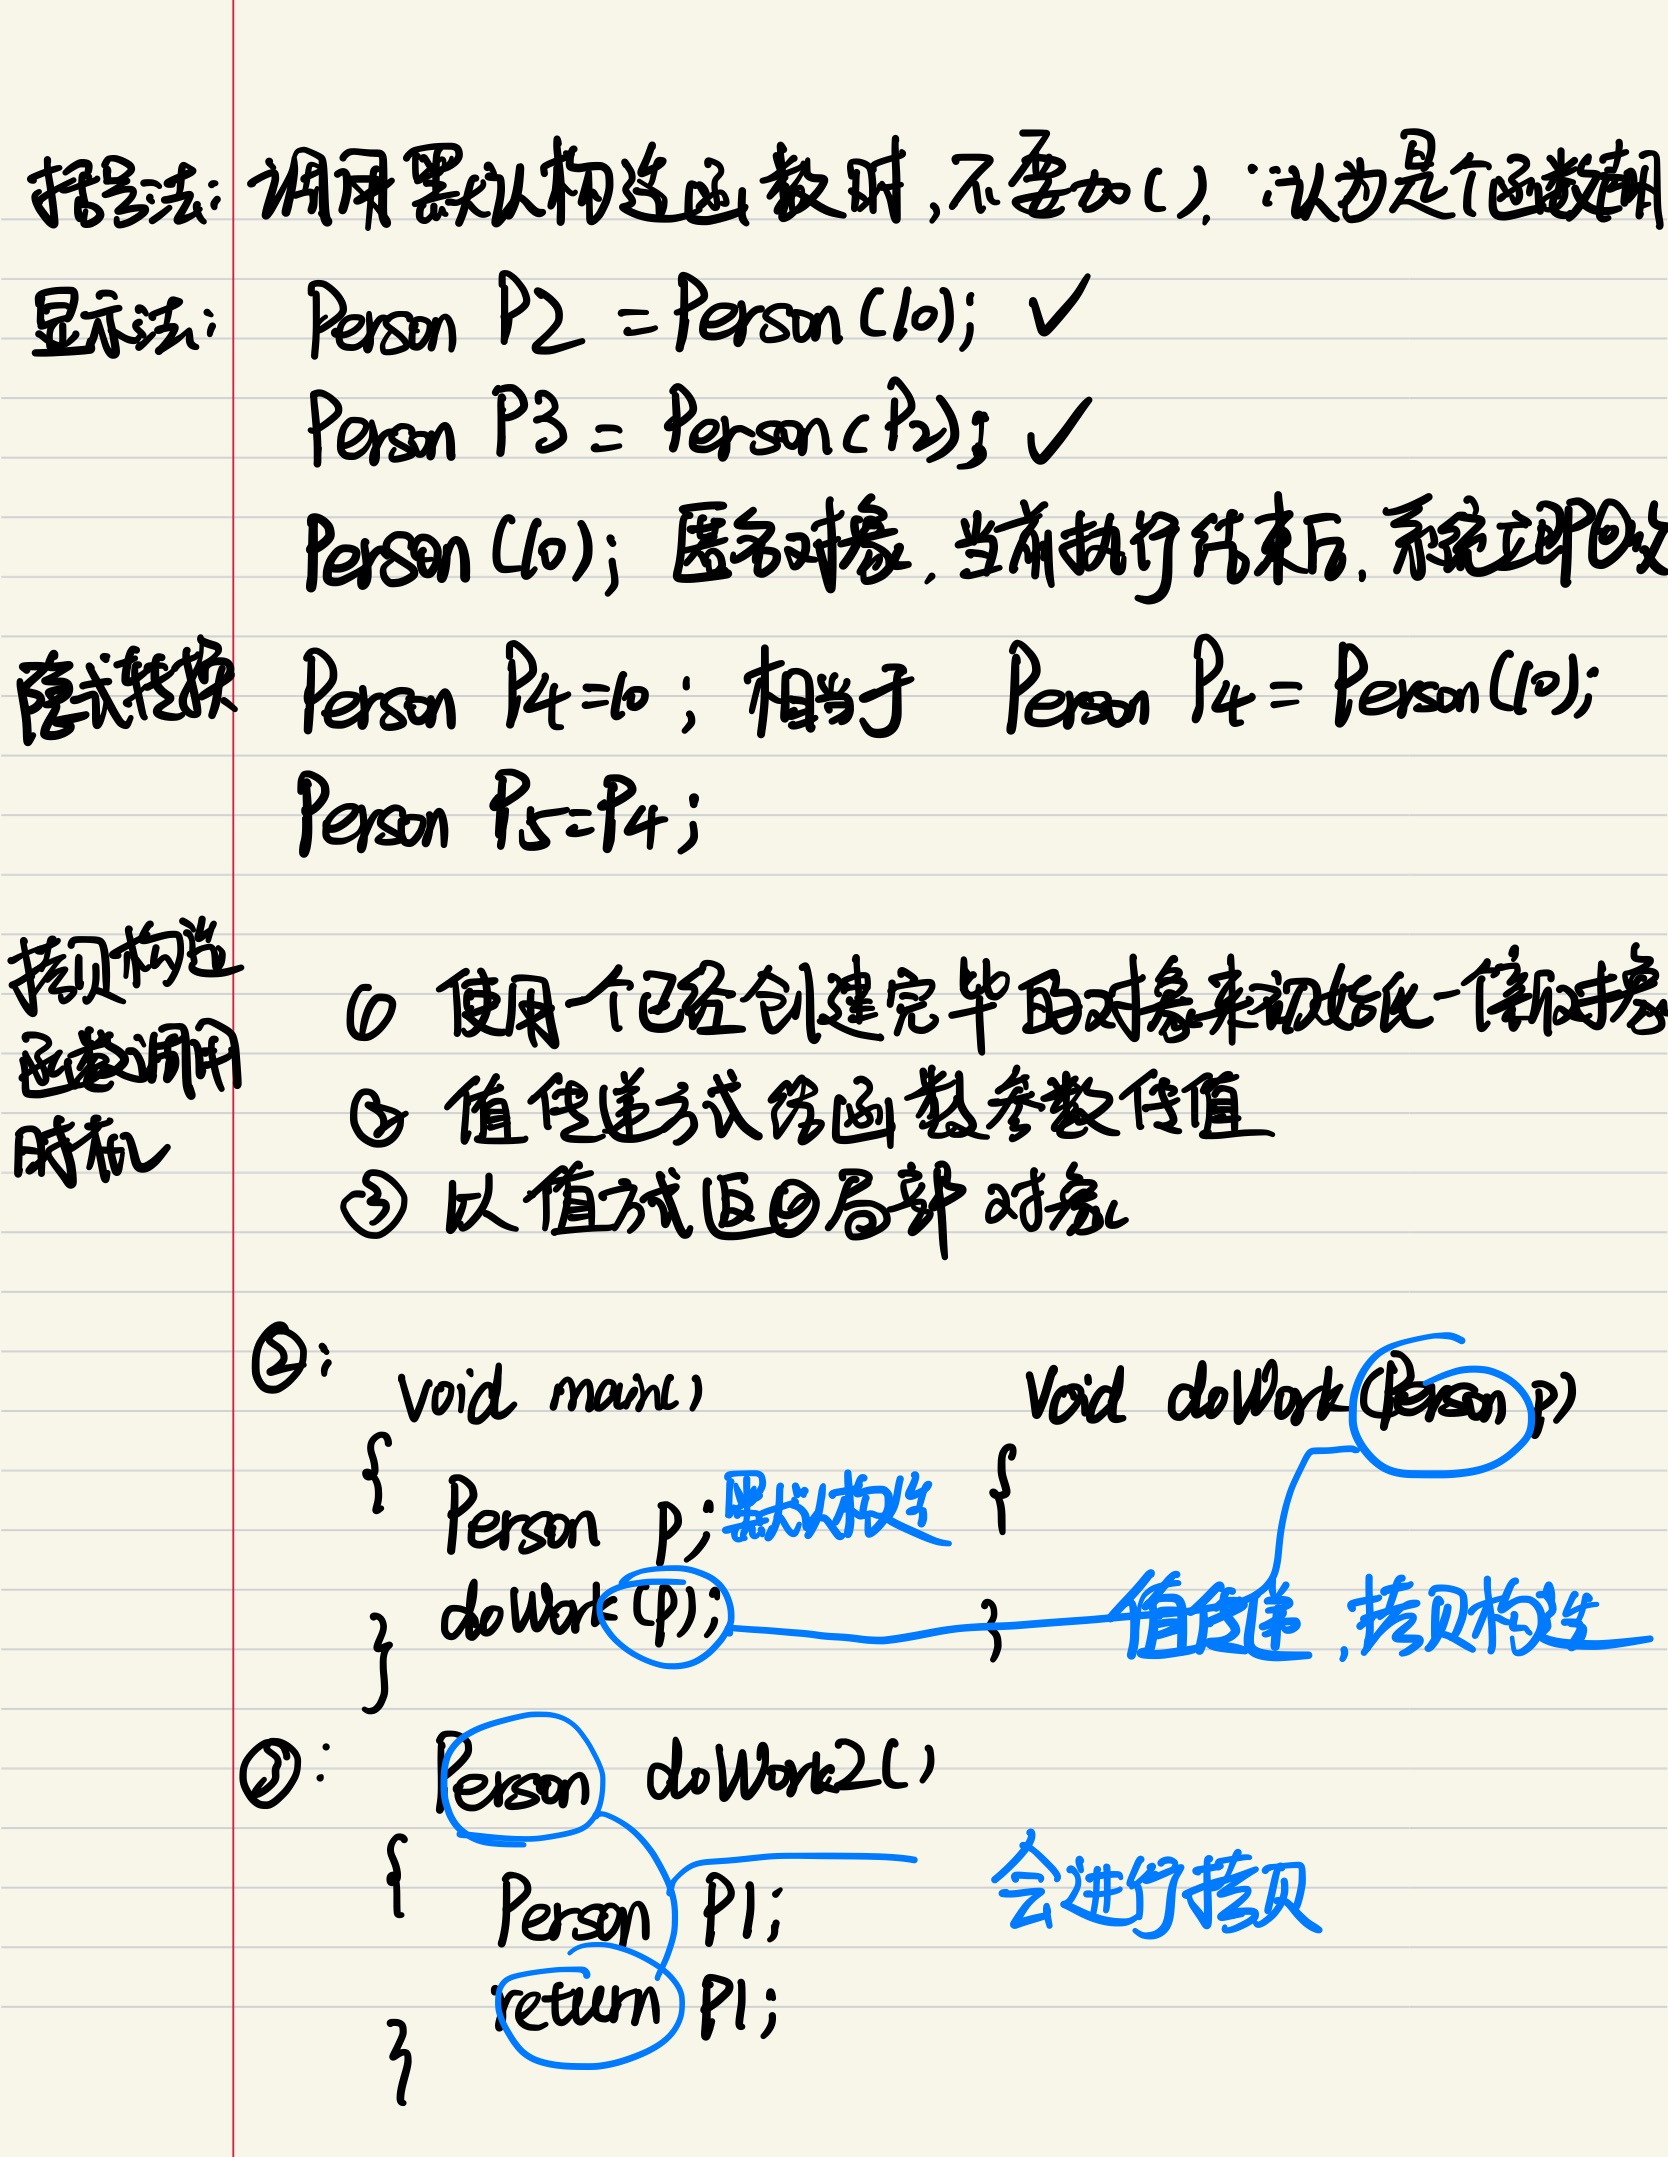 括号法: 调用默认构造函数时,不要加(). ∵认为是个函数声明
显示法: Person P2 = Person(10); ✓
Person P3 = Person(P2); ✓
Person(10); 匿名对象. 当前执行结束后. 系统立即回收
隐式转换 Person P4=10; 相当于 Person P4 = Person(10);
Person P5=P4;
拷贝构造
函数调用
时机
① 使用一个已经创建完毕的对象来初始化一个新对象
② 值传递方式给函数参数传值
③ 以值方式返回局部对象
②:
void main()
{
Person p; 默认构造
doWork(p);
}
void doWork(Person p)
{
}
值传递,拷贝构造
③: Person doWork2()
{
Person P1; 会进行拷贝
return P1;
}